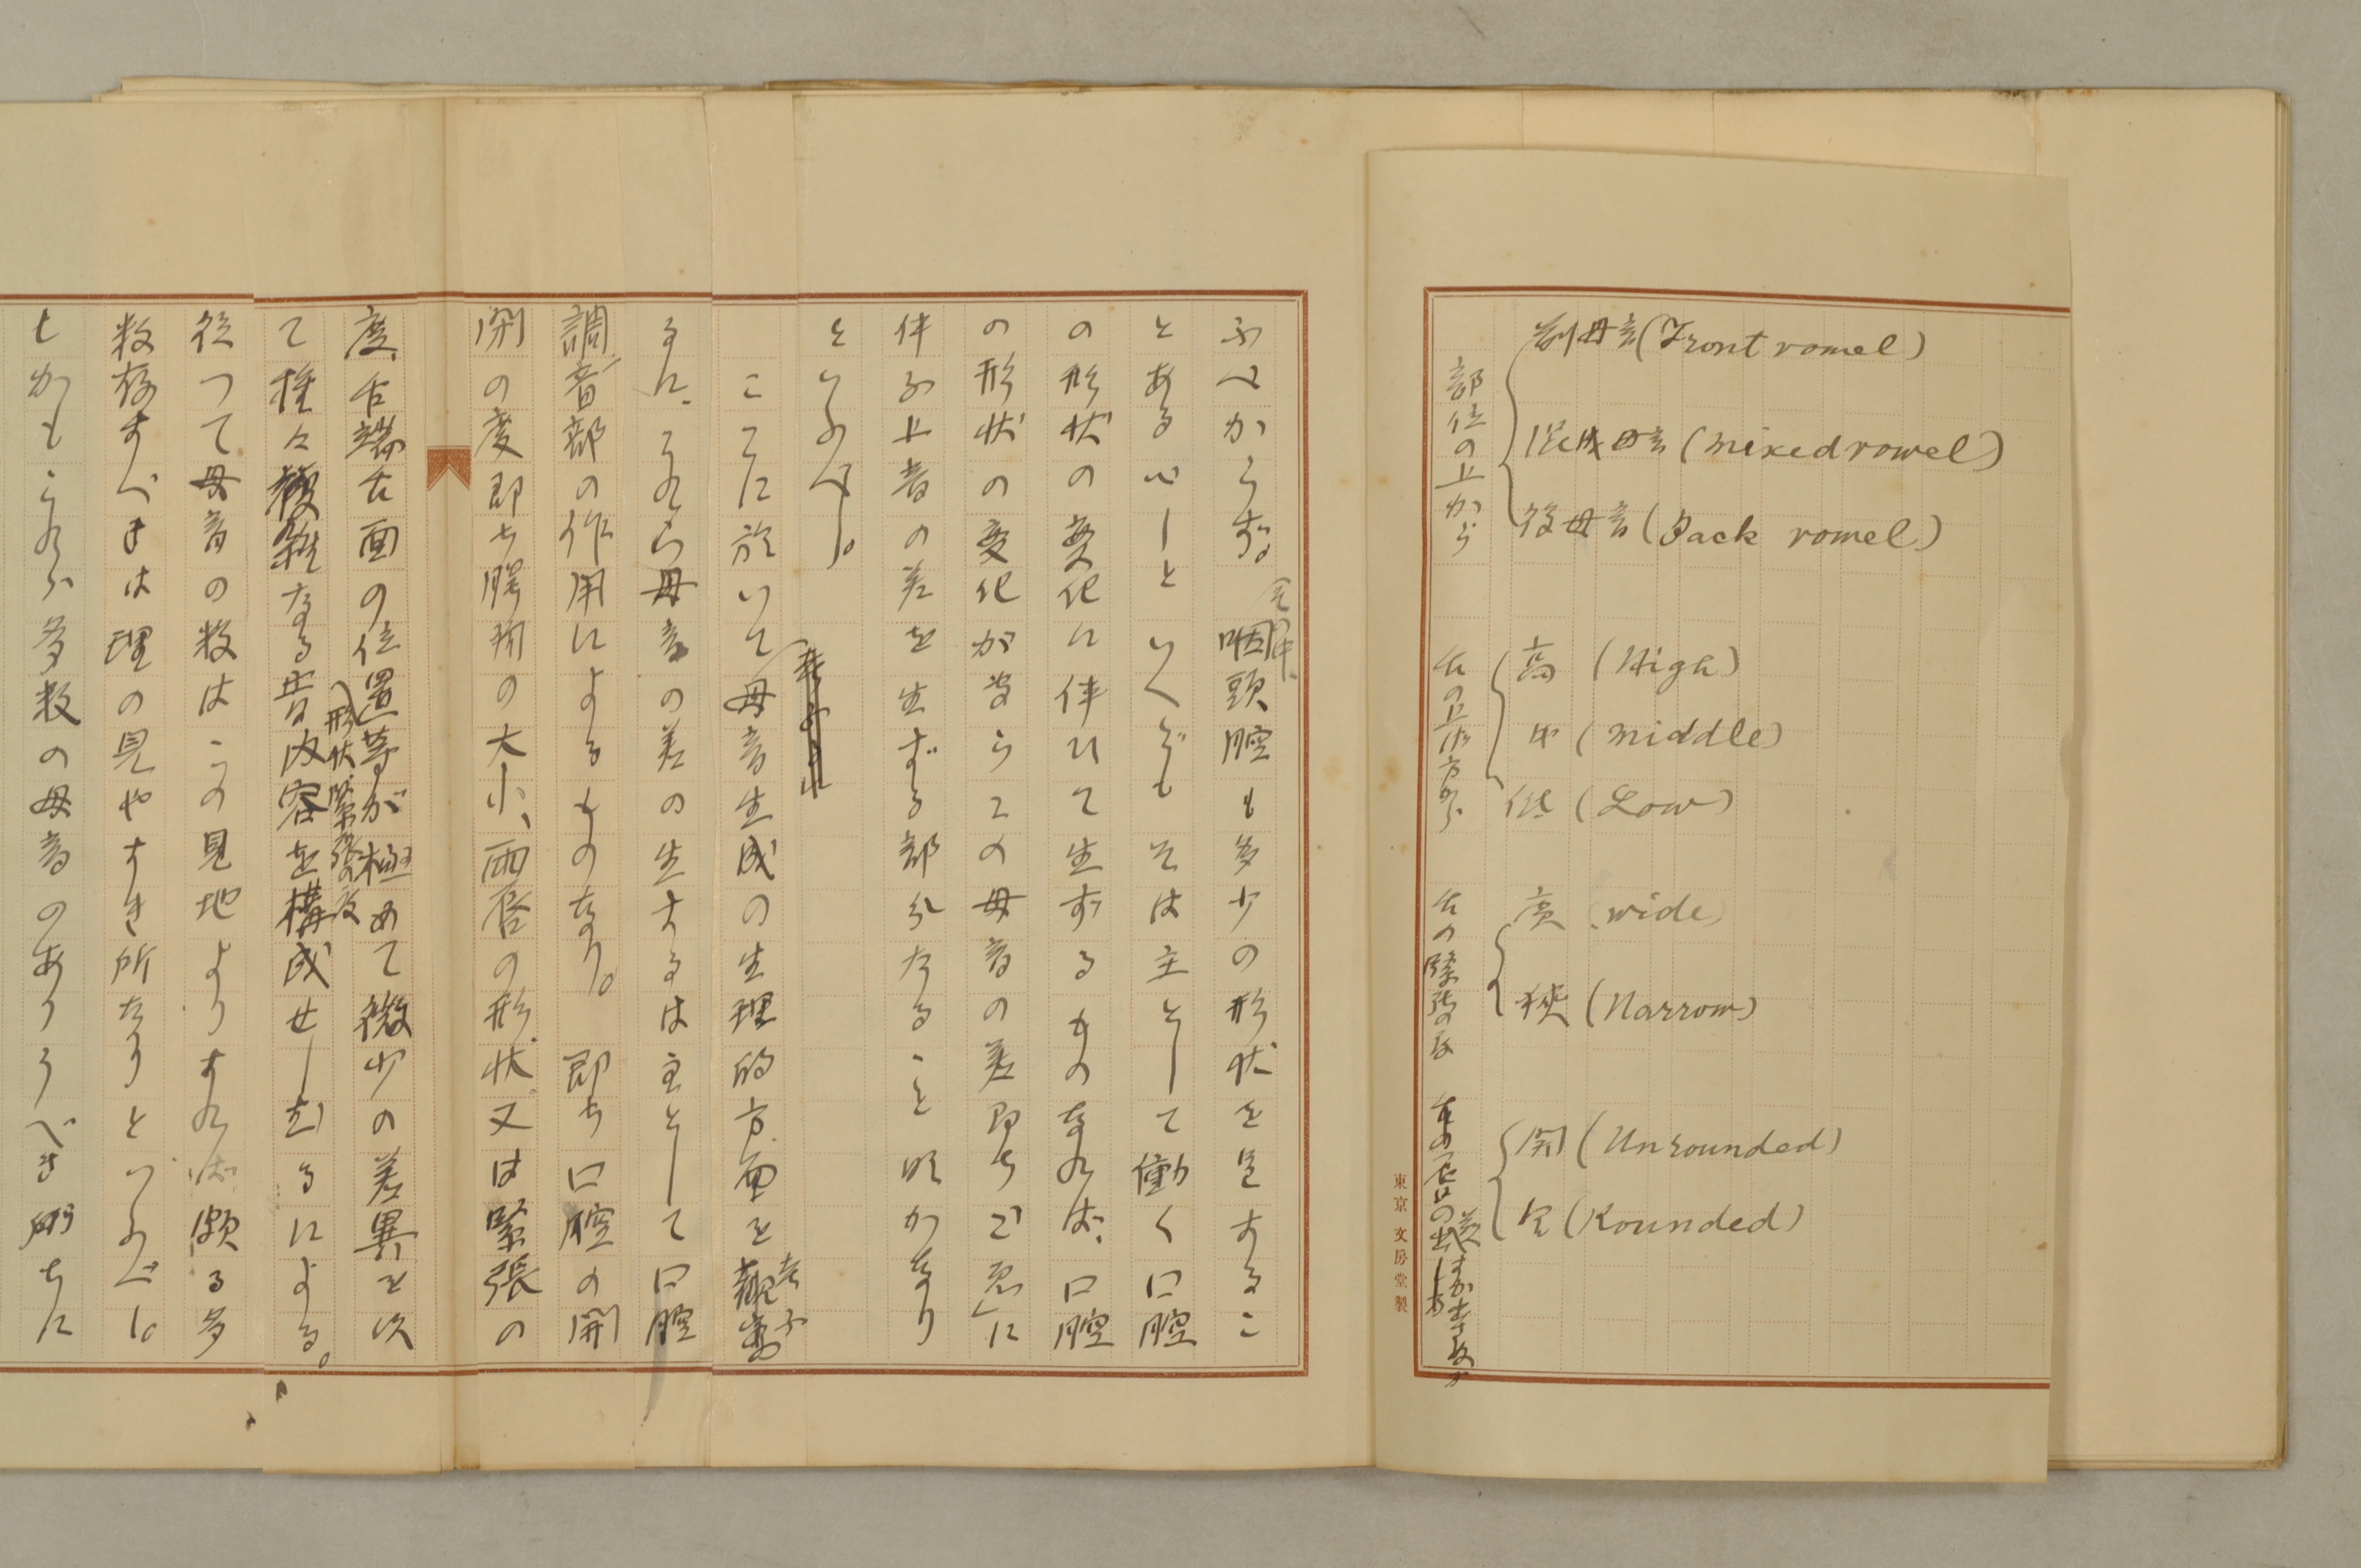 部位の上から
前母音(Front vowel)
混成母音(mixed vowel)
後母音(Back vowel)
舌の上下の方から
高(High)
中(middle)
低(Low)
舌の緊張の度
廣(wide)
狭(Narrow)
開(Unrounded)
(Rounded)
東京 文房堂製
ふべからず。咽頭腔も多少の形状を呈するこ
とあるべしといへどもそは主として働く口腔
の形状の変化に伴ひて生ずるものなれば、口腔
の形状の変化が专らこの母音の差即ち
伴ふ止音の差を生ずる部分なること明かなり
といふべし。
ここに於いて母音生成の生理的方面を觀察
するに、これら母音の差の生するは主として口腔
調音部の作用によるものなり。即ち口腔の開
閉の度即ち腭開の大小、両唇の形状又は緊張の
度、舌端舌面の位置等が極めて微少の差異を以
形状、緊張の度
て種々複雑なる音内容を構成せしむるによる。
従つて母音の数はこの見地よりすれば頗る多
数存すべきは理の見やすき所なりといふべし。
しかもこれら多数の母音のありうべき